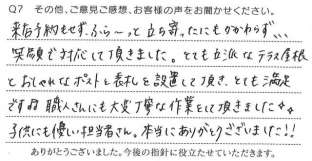 Q7 その他、ご意見ご感想、お客様の声をお聞かせください。
来店予約もせず、ふら〜っと立ち寄ったにもかかわらず、、、
笑顔で対応して頂きました。とても立派なテラス屋根
とおしゃれなポストと表札を設置して頂き、とても満足
です♫ 職人さんにも大変丁寧な作業をして頂きました✧✧
子供にも優しい担当者さん。本当にありがとうございました!!
ありがとうございました。今後の指針に役立たせていただきます。